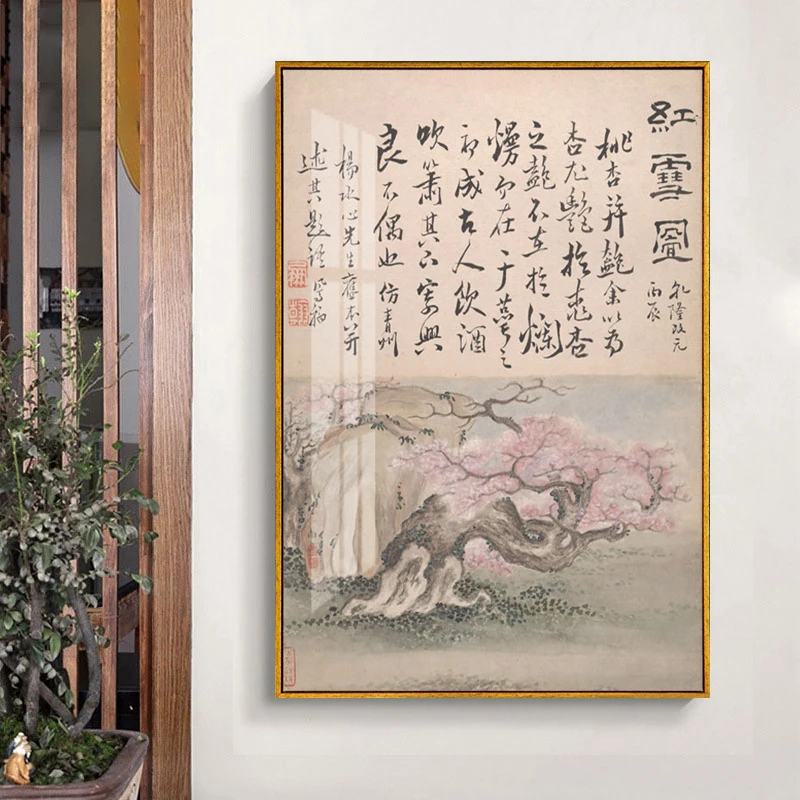 紅雪圖
乾隆改元
丙辰
桃杏並艶余以為
杏尤艷於桃杏
之艶不在於爛
熳而在于萼之
初成古人飲酒
吹簫其下寄興
良不偶也仿青州
楊水心先生舊本并
述其題語